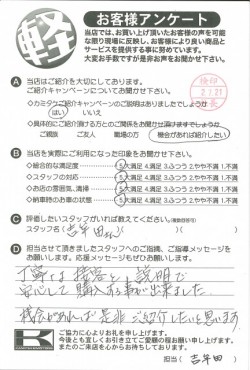 軽
お客様アンケート
当店では、お買い上げ頂いたお客様の声を可能
な限り現場に反映し、お客様により良い商品と
サービスを提供する事に努めています。
大変お手数ですが是非お声をお聞かせ下さい。
A 当店はご紹介を大切にしております。
ご紹介キャンペーンについてお聞かせ下さい。
◇カミタウンご紹介キャンペーンのご説明はありましたでしょうか
はい いいえ
◇具体的にご紹介頂ける方とのご関係をお聞かせ頂けますでしょうか
ご親族 ご友人 職場の方 機会があれば紹介したい
検印
2.1.21
長
B 当店を実際にご利用になった印象をお聞かせ下さい。
◇総合的な満足度 5.大満足 4.満足 3.ふつう 2.やや不満 1.不満
◇スタッフの対応 5.大満足 4.満足 3.ふつう 2.やや不満 1.不満
◇お店の雰囲気、清掃 5.大満足 4.満足 3.ふつう 2.やや不満 1.不満
◇納車時のお車の状態 5.大満足 4.満足 3.ふつう 2.やや不満 1.不満
C 評価したいスタッフがいれば教えてください。(複数回答可)
スタッフ名( 吉年田さん )
D 担当させて頂きましたスタッフへのご指摘、ご指導メッセージを
お願いします。応援メッセージもぜひお願いします。
丁寧な接客と、説明で
安心して購入する事が出来ました。
機会があれば是非ご紹介したいと思います。
K
ご協力に心よりお礼を申し上げます。
今後とも宜しくお引き立てご愛顧の程お願い申し上げます。
またのご来店を心からお待ちしております。
担当( 吉年田 )